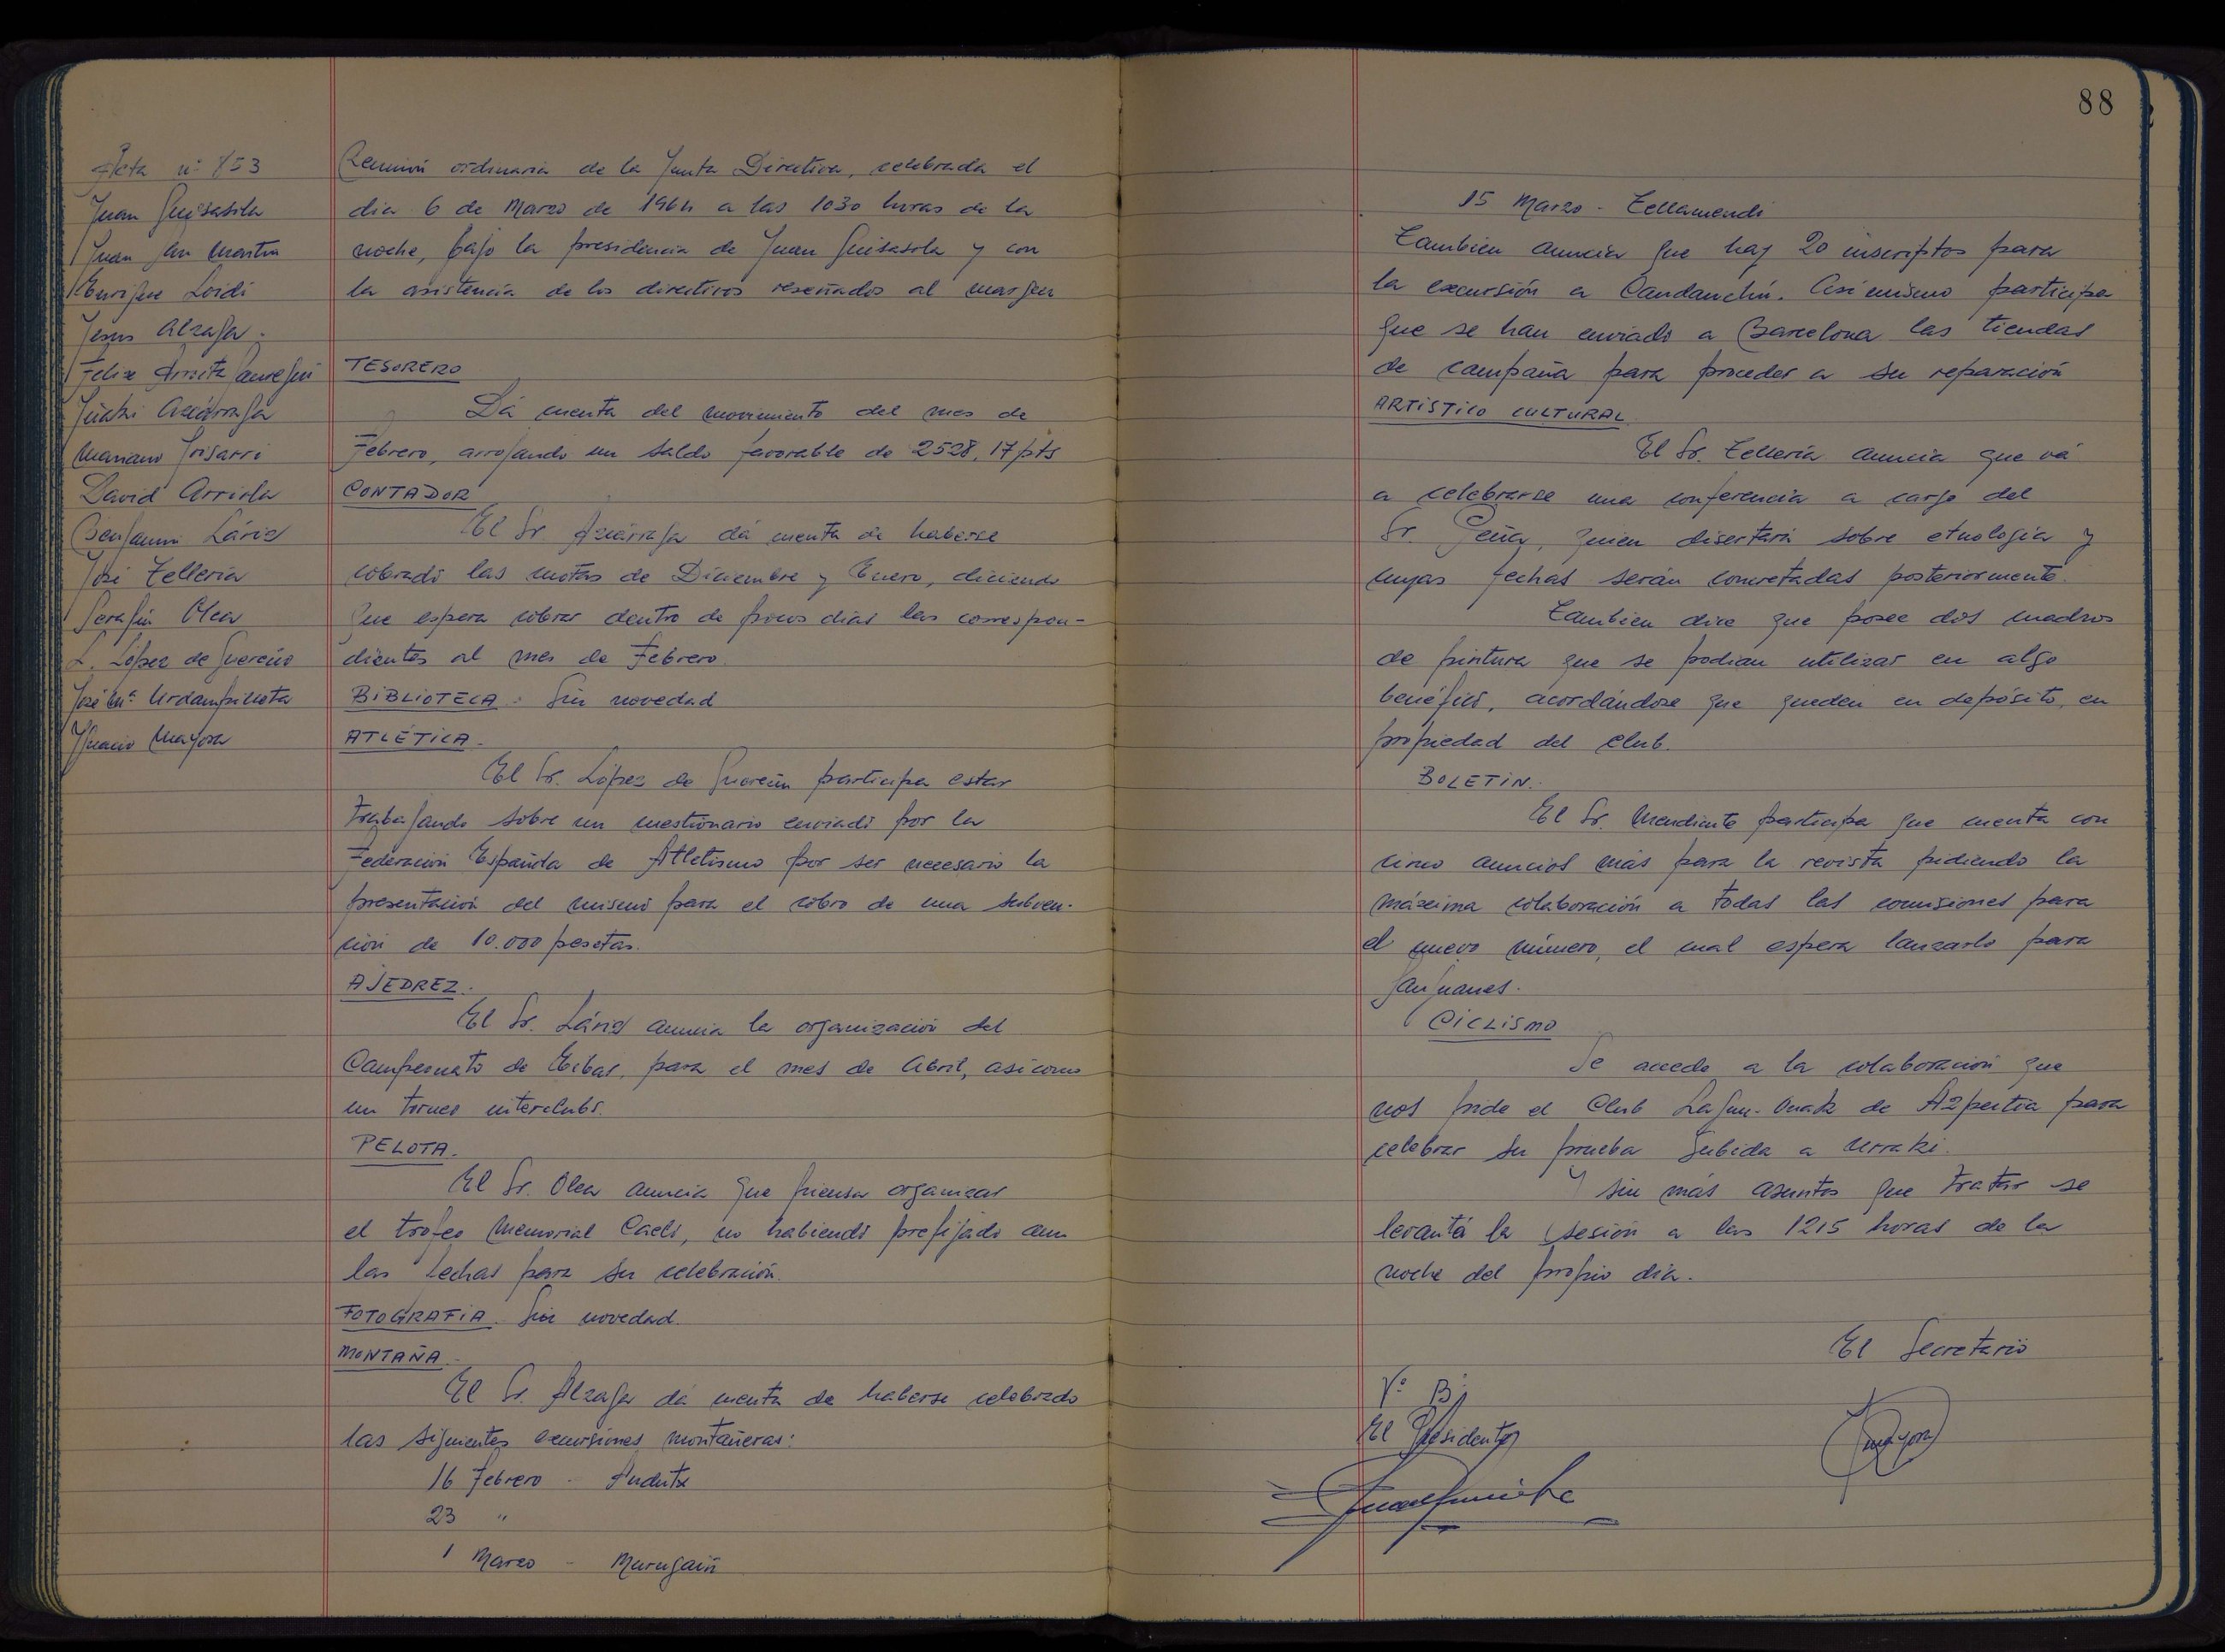 Acta nº 853
Juan Guisasola
Juan San Martín
Enrique Loidi
Jesus Alzaga.
Felix Arrieta
Iñaki Azcárraga
Mariano Irisarri
David Arriola
Benjamin Lárid
José Telleria
Serafin Olea
L. López de Guereño
José Mª Urdampilleta
Ignacio Mayora
Reunión ordinaria de la Junta Directiva, celebrada el
dia 6 de Marzo de 1964 a las 1030 horas de la
noche, bajo la presidencia de Juan Guisasola y con
la asistencia de los directivos reseñados al margen
TESORERO
Dá cuenta del movimiento del mes de
Febrero, arrojando un saldo favorable de 2528,17 pts
CONTADOR
El Sr. Azcárraga dá cuenta de haberse
cobrado las cuotas de Diciembre y Enero, diciendo
que espera cobrar dentro de pocos dias las correspon-
dientes al mes de Febrero.
BIBLIOTECA. Sin novedad
ATLÉTICA.
El Sr. López de Guereñu participa estar
trabajando sobre un cuestionario enviado por la
Federación Española de Atletismo por ser necesario la
presentación del mismo para el cobro de una subven-
ción de 10.000 pesetas.
AJEDREZ.
El Sr. Lárid anuncia la organización del
Campeonato de Eibar, para el mes de Abril, asi como
un torneo interclubs.
PELOTA.
El Sr. Olea anuncia que piensa organizar
el trofeo Memorial, no habiendo prefijado aun
las fechas para su celebración.
FOTOGRAFIA. Sin novedad.
MONTAÑA.
El Sr. Alzaga dá cuenta de haberse celebrado
las siguientes excursiones montañeras:
16 Febrero - Andutz
23 "
1 Marzo - Murugain
88
15 Marzo - Tellamendi
Tambien anuncia que hay 20 inscriptos para
la excursión a Candanchú. Asi mismo participa
que se han enviado a Barcelona las tiendas
de campaña para proceder a su reparación
ARTISTICO CULTURAL.
El Sr. Telleria anuncia que vá
a celebrarse una conferencia a cargo del
Sr. Peña, quien disertará sobre etnologia y
cuyas fechas serán concretadas posteriormente.
Tambien dice que posee dos cuadros
de pintura que se podian utilizar en algo
benéfico, acordándose que queden en depósito, en
propiedad del Club.
BOLETIN.
El Sr. Mendicute participa que cuenta con
cinco anuncios más para la revista pidiendo la
máxima colaboración a todas las comisiones para
el nuevo número, el cual espera lanzarlo para
San Juanes.
CICLISMO
Se accede a la colaboración que
nos pide el Club Lagun-Onak de Azpeitia para
celebrar su prueba Subida a Urraki.
Y sin más asuntos que tratar se
levantá la sesión a las 1215 horas de la
noche del propio dia.
El Secretario
Vº Bº
El Presidente